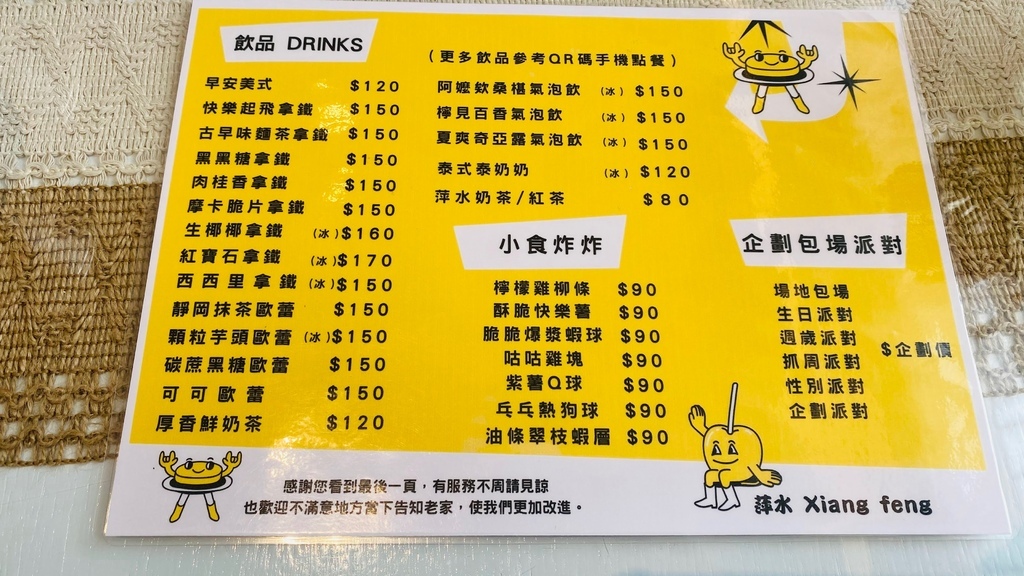 飲品 DRINKS
早安美式 $120
快樂起飛拿鐵 $150
古早味麵茶拿鐵 $150
黑黑糖拿鐵 $150
肉桂香拿鐵 $150
摩卡脆片拿鐵 $150
生椰椰拿鐵 (冰)$160
紅寶石拿鐵 (冰)$170
西西里拿鐵 (冰)$150
靜岡抹茶歐蕾 $150
顆粒芋頭歐蕾 (冰)$150
碳蔗黑糖歐蕾 $150
可可歐蕾 $150
厚香鮮奶茶 $120
(更多飲品參考QR碼手機點餐)
阿嬤欸桑椹氣泡飲 (冰) $150
檸見百香氣泡飲 (冰) $150
夏爽奇亞露氣泡飲 (冰) $150
泰式泰奶奶 (冰) $120
萍水奶茶/紅茶 $80
小食炸炸
檸檬雞柳條 $90
酥脆快樂薯 $90
脆脆爆漿蝦球 $90
咕咕雞塊 $90
紫薯Q球 $90
乓乓熱狗球 $90
油條翠枝蝦層 $90
企劃包場派對
場地包場
生日派對
週歲派對
抓周派對
性別派對
企劃派對
$企劃價
感謝您看到最後一頁，有服務不周請見諒
也歡迎不滿意地方當下告知老家，使我們更加改進。
萍水 Xiang feng